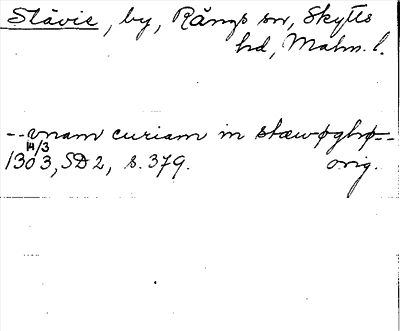 Stävie, by, Rängs sn, Skytts
hd, Malm. l.
-- vnam curiam in stæwøghrø--
14/3
1303, SD 2, s. 379. orig.